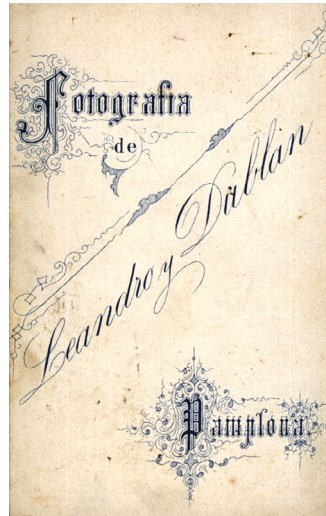 Fotografia
de
Leandro y Dablán
Pamplona